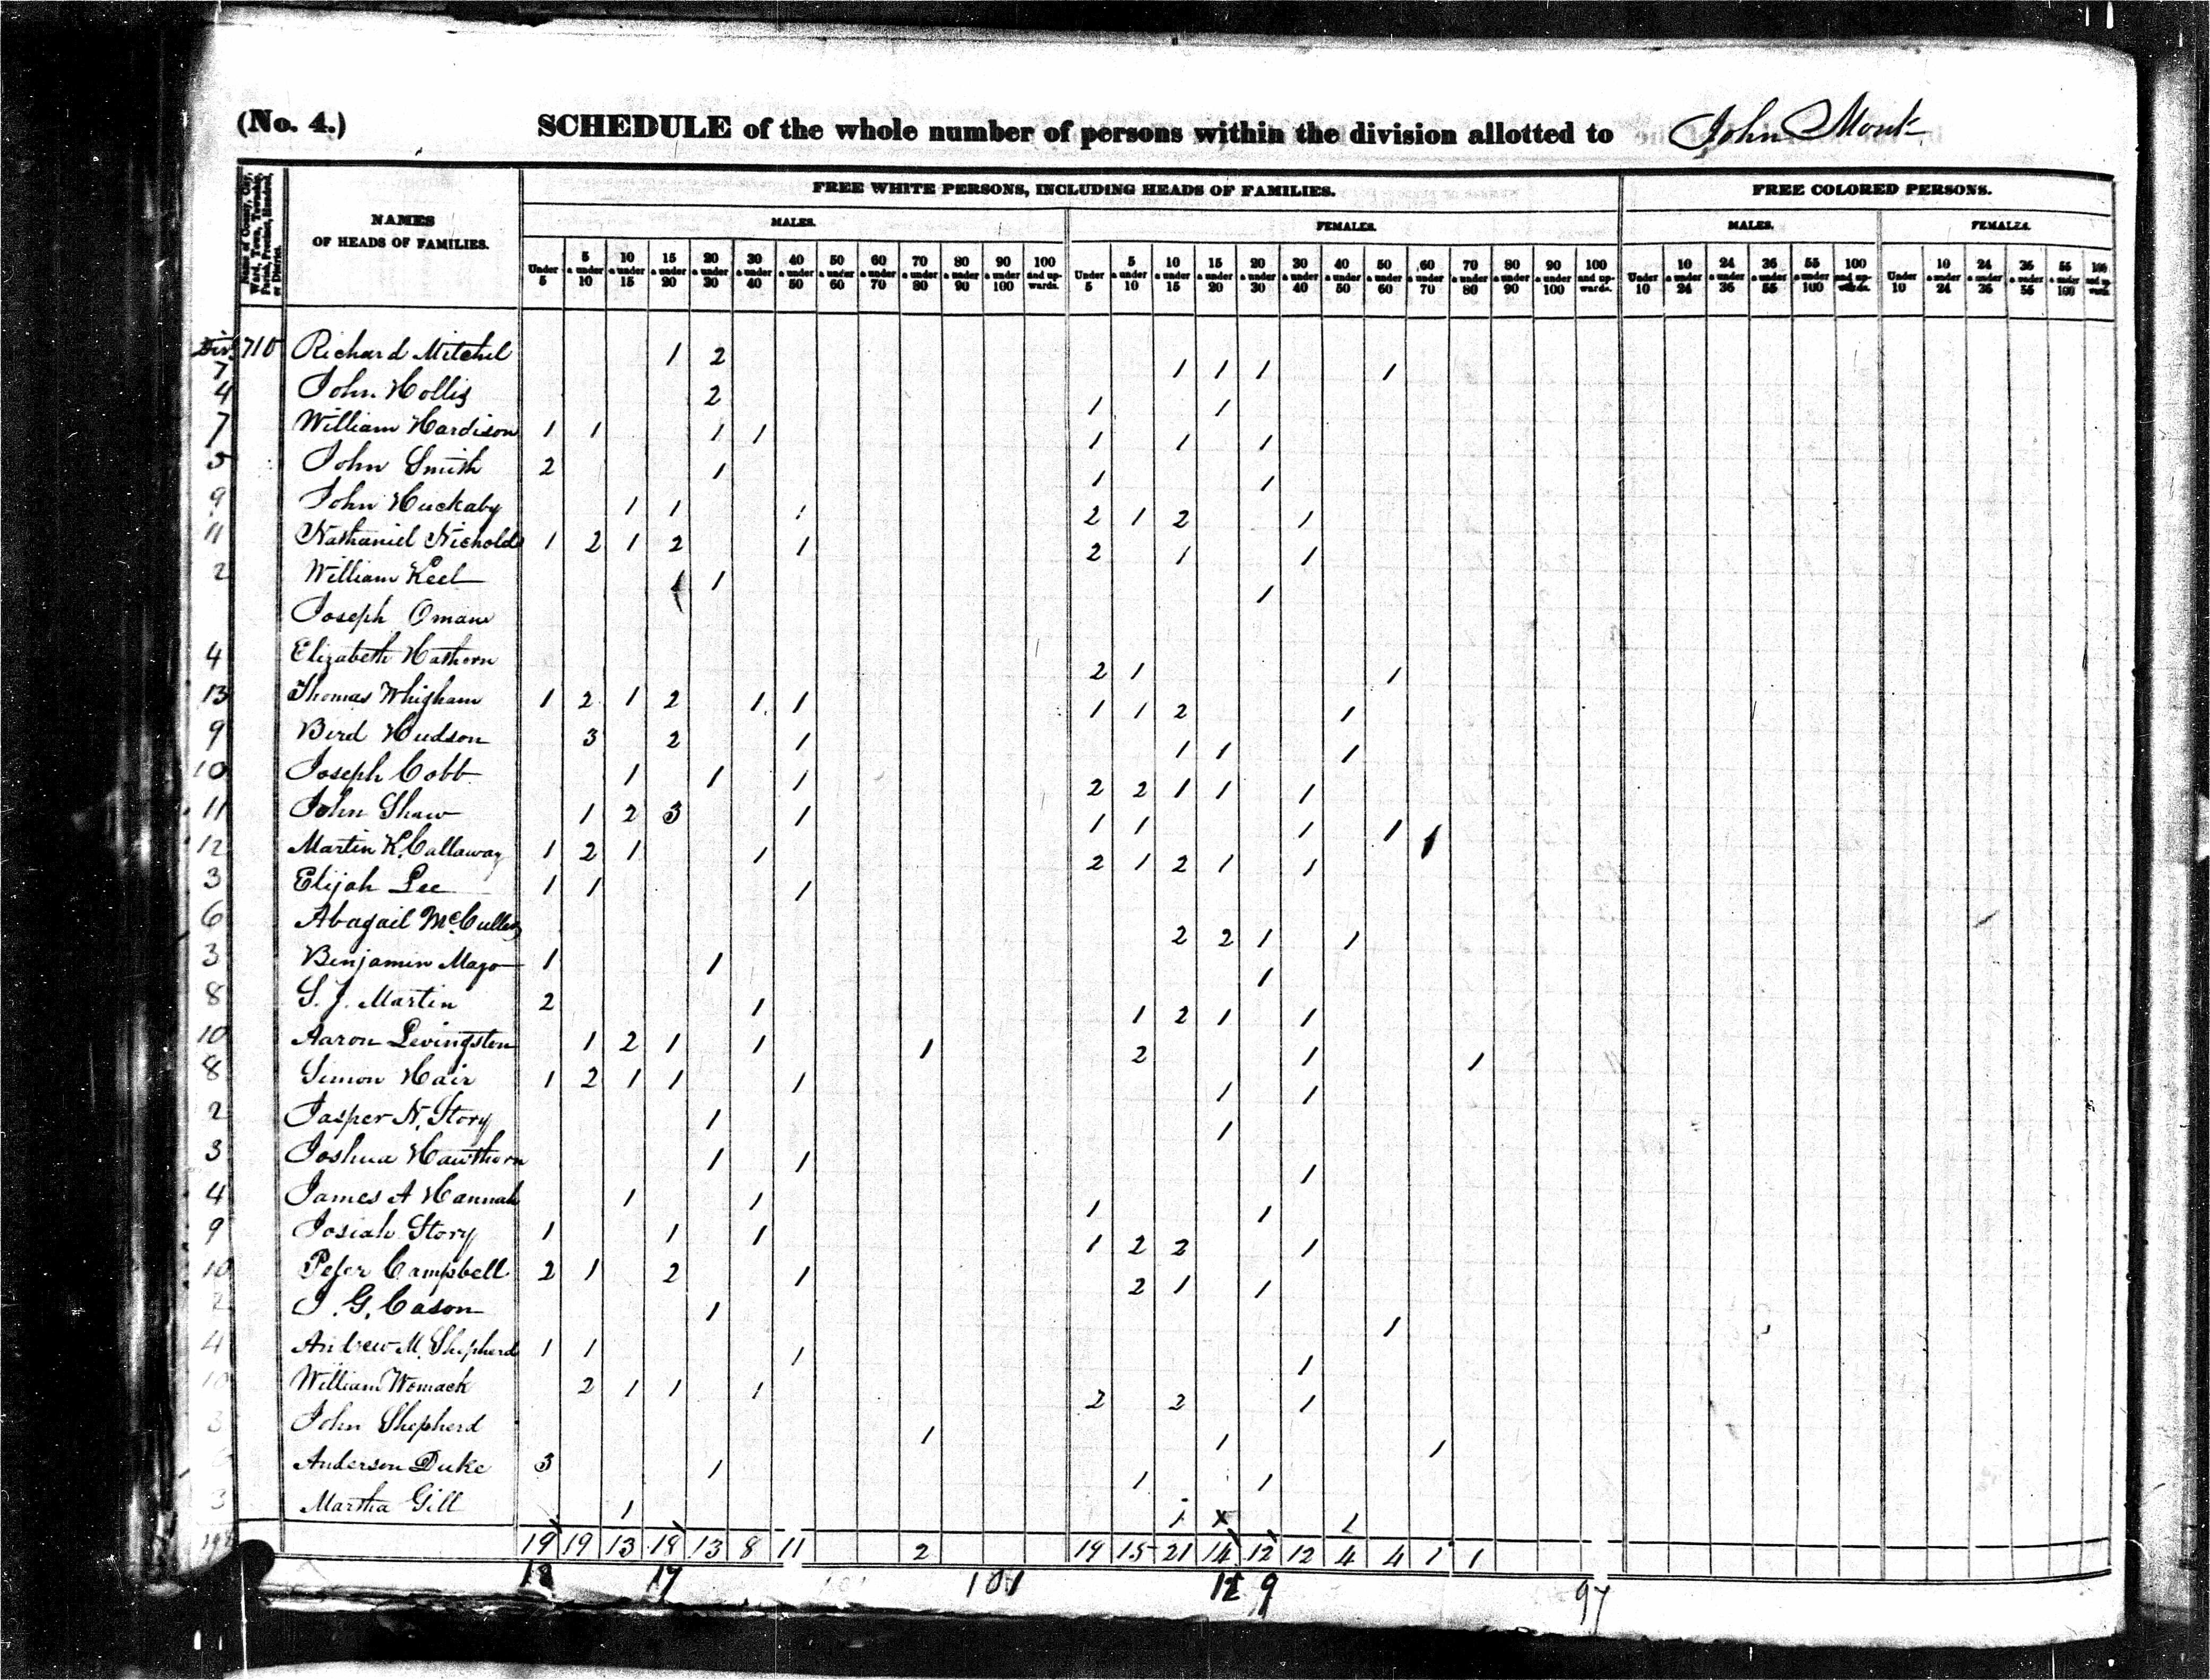 (No. 4.) SCHEDULE of the whole number of persons within the division allotted to John Monk
Name of County, City, Ward, Town, Township, Parish, Precinct, Hundred, or District.
NAMES OF HEADS OF FAMILIES.
FREE WHITE PERSONS, INCLUDING HEADS OF FAMILIES. FREE COLORED PERSONS.
MALES. FEMALES. MALES. FEMALES.
Under 5 5 a under 10 10 a under 15 15 a under 20 20 a under 30 30 a under 40 40 a under 50 50 a under 60 60 a under 70 70 a under 80 80 a under 90 90 a under 100 100 and upwards. Under 5 5 a under 10 10 a under 15 15 a under 20 20 a under 30 30 a under 40 40 a under 50 50 a under 60 60 a under 70 70 a under 80 80 a under 90 90 a under 100 100 and upwards. Under 10 10 a under 24 24 a under 36 36 a under 55 55 a under 100 100 and upwards. Under 10 10 a under 24 24 a under 36 36 a under 55 55 a under 100 100 and upwards.
710 Richard Mitchel 1 2 1 1 1 1
7
4 John Hollis 2 1 1
7 William Hardison 1 1 1 1 1 1 1
5 John Smith 2 1 1 1
9 John Huckaby 1 1 1 2 1 2 1
11 Nathaniel Nicholds 1 2 1 2 1 2 1 1
2 William Keel 1 1
Joseph Oman
4 Elizabeth Hathorn 2 1 1
13 Thomas Whigham 1 2 1 2 1 1 1 1 2 1
9 Bird Hudson 3 2 1 1 1 1
10 Joseph Cobb 1 1 1 2 2 1 1 1
11 John Shaw 1 2 3 1 1 1 1 1 1
12 Martin K. Callaway 1 2 1 1 2 1 2 1 1
3 Elijah Lee 1 1 1
6 Abagail McCullers 2 2 1 1
3 Benjamin Mayo 1 1 1
8 S. J. Martin 2 1 1 2 1 1
10 Aaron Levingston 1 2 1 1 1 2 1 1
8 Simon Hair 1 2 1 1 1 1 1
2 Jasper N. Story 1 1
3 Joshua Hawthorn 1 1 1
4 James A Hannah 1 1 1 1
9 Josiah Story 1 1 1 1 2 2 1
10 Peter Campbell 2 1 2 1 2 1 1
2 J. G. Cason 1 1
4 Andrew M. Shepherd 1 1 1 1
10 William Womack 2 1 1 1 2 2 1
3 John Shepherd 1 1 1
Anderson Duke 3 1 1 1
3 Martha Gill 1 1 x 1
198 19 19 13 18 13 8 11 2 19 15 21 14 12 12 4 4 1 1
18 17 101 101 12 9 97